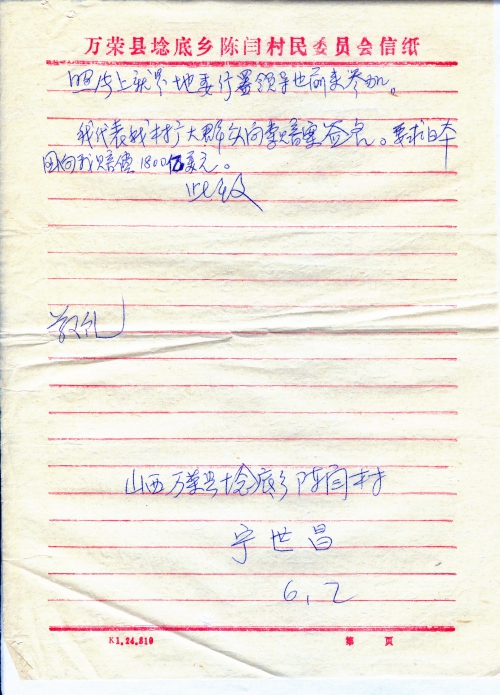 万荣县埝底乡陈闫村民委员会信纸
上就界地委行署领导也前来参加。
我代表我村广大群众向索赔案签名。要求日本
国向我赔偿1800亿美元。
此致
敬礼
山西万荣县埝底乡陈闫村
宁世昌
6.2
K1.24.810
第 页